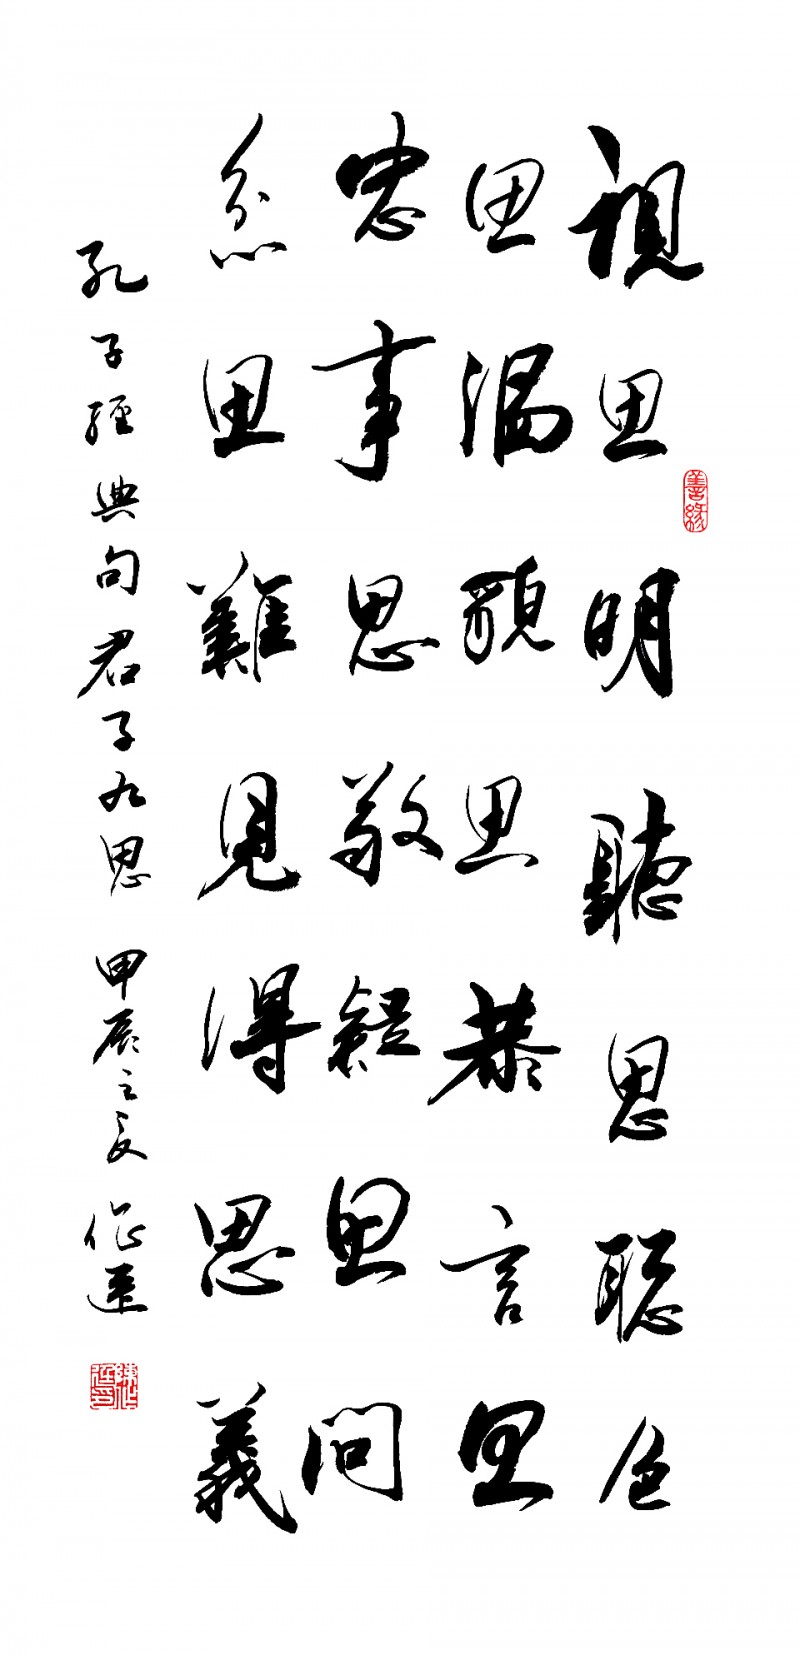 視思明聽思聰色
思溫貌思恭言思
忠事思敬疑思問
忿思難見得思義
孔子經典句君子九思 甲辰之夏 作連
善緣
陳作連印